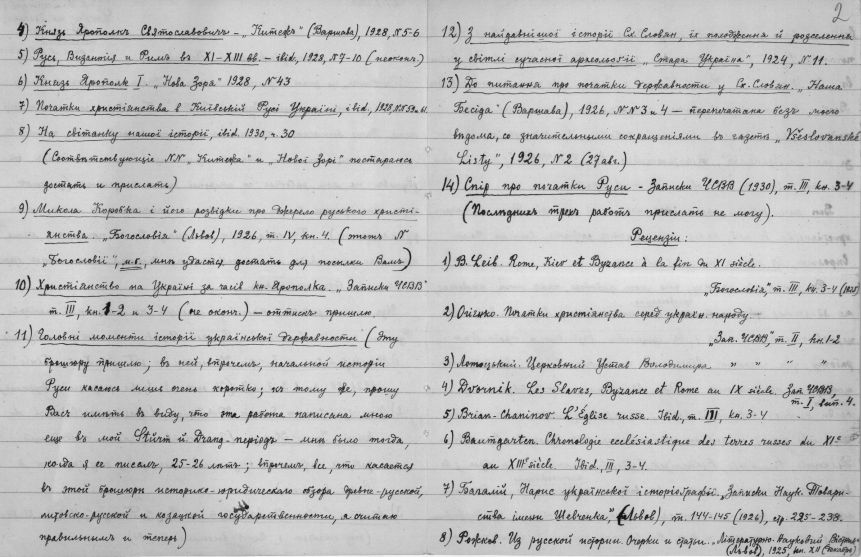 4) Князь Ярополк Святославович – „Китежъ" (Варшава), 1928, N 5-6
5) Русь, Византія и Римъ въ XI-XIII вв. – ibid, 1928, N 7-10 (неоконч.)
6) Князь Ярополк I. „Нова Зоря" 1928, N 43
7) Початки християнства в Київській Русі Україні, ibid, 1928, NN 59 и 61.
8) На світанку нашої історії, ibid. 1930, ч. 30
(Соотвѣтствующіе NN „Китежа" и „Нової Зорі" постараюсь
достать и прислать)
9) Микола Коробка і його розвідки про джерело руського христі-
янства. „Богословія" (Львов), 1926, т. IV, кн. 4. (этотъ N
„Богословії", м.б., мнѣ удастся достать для посылки Вамъ)
10) Християнство на Україні за часів кн. Ярополка. „Записки ЧСВВ"
т. III, кн. 1-2 и 3-4 (не оконч.) – оттиск пришлю
11) Головні моменти історії української державности (эту
брошюру пришлю; въ ней, впрочемъ, начальной исторіи
Руси касаюсь лишь очень коротко; къ тому же, прошу
Васъ имѣть въ виду, что эта работа написана мною
еще въ мой Sturm й Drang-періодъ – мнѣ было тогда,
когда я ее писалъ, 25-26 лѣтъ; впрочемъ, все, что касается
въ этой брошюрѣ историко-юридическаго обзора древне-русской,
литовско-русской и козацкой государственности, я считаю
правильнымъ и теперь)
2
12) З найдавнішої історії Сх. Словян, їх походження й розселення
у світлі сучасної археольоґії „Стара Україна", 1924, N 11.
13) До питання про початки державности у Сх. Словян. „Наша
Бесіда" (Варшава), 1926, NN 3 и 4 – перепечатана безъ моего
вѣдома, со значительными сокращеніями въ газетѣ „Všeslovanské
Listy", 1926, N 2 (27 авг.)
14) Спір про початки Руси – Записки ЧСВВ (1930), т. III, кн. 3-4
(Послѣднихъ трехъ работъ прислать не могу).
Рецензіи:
1) B. Leib. Rome, Kiev et Byzance à la fin du XI siècle.
„Богословія", т. III, кн. 3-4 (1925)
2) Огієнко. Початки християнства серед україн. народу.
„Зап. ЧСВВ" т. II, кн. 1-2
3) Лотоцький. Церковний Устав Володимира " " " "
4) Dvornik. Les Slaves, Byzance et Rome au IX siècle. Зап. ЧСВВ,
т. I, вип. 4.
5) Brian-Chaninov. L'Église russe. Ibid, т. III, кн. 3-4
6) Baumgarten. Chronologie ecclésiastique des terres russes du XIe
au XIIIe siècle. Ibid, III, 3-4.
7) Багалій, Нарис української історіографії „Записки Наук. Товари-
ства імени Шевченка", (Львов), т. 144-145 (1926), стр. 225-238.
8) Рожков. Из русской истории. Очерки и статьи. „Літературно-Науковий Вістник"
(Львов), 1925, кн. XII (декабрь)